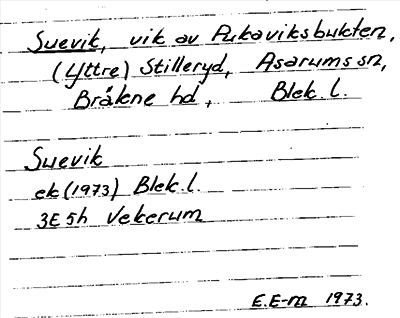 Suevik, vik av Pukaviksbukten,
(Yttre) Stilleryd, Asarums sn,
Bräkne hd, Blek. l.
Suevik
ek (1973) Blek. l.
3E 5h Vekerum
E.E-m 1973.